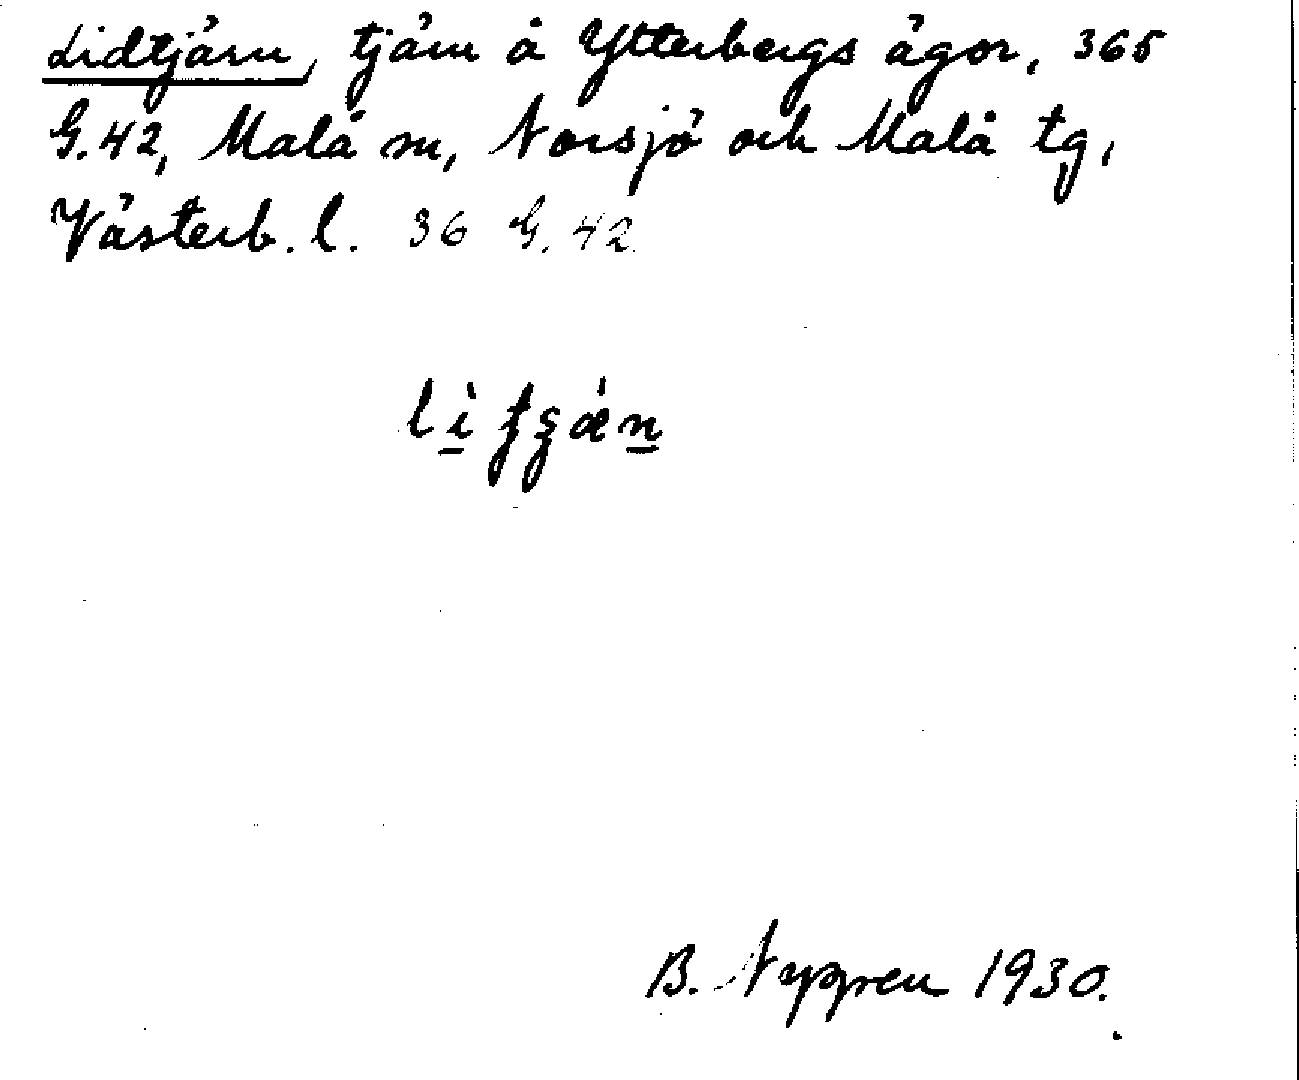 Lidtjärn, tjärn å Ytterbergs ägor, 365
G.42, Malå sn, Norsjö och Malå tg,
Västerb. l. 36 G. 42.
B. Nyggren 1930.